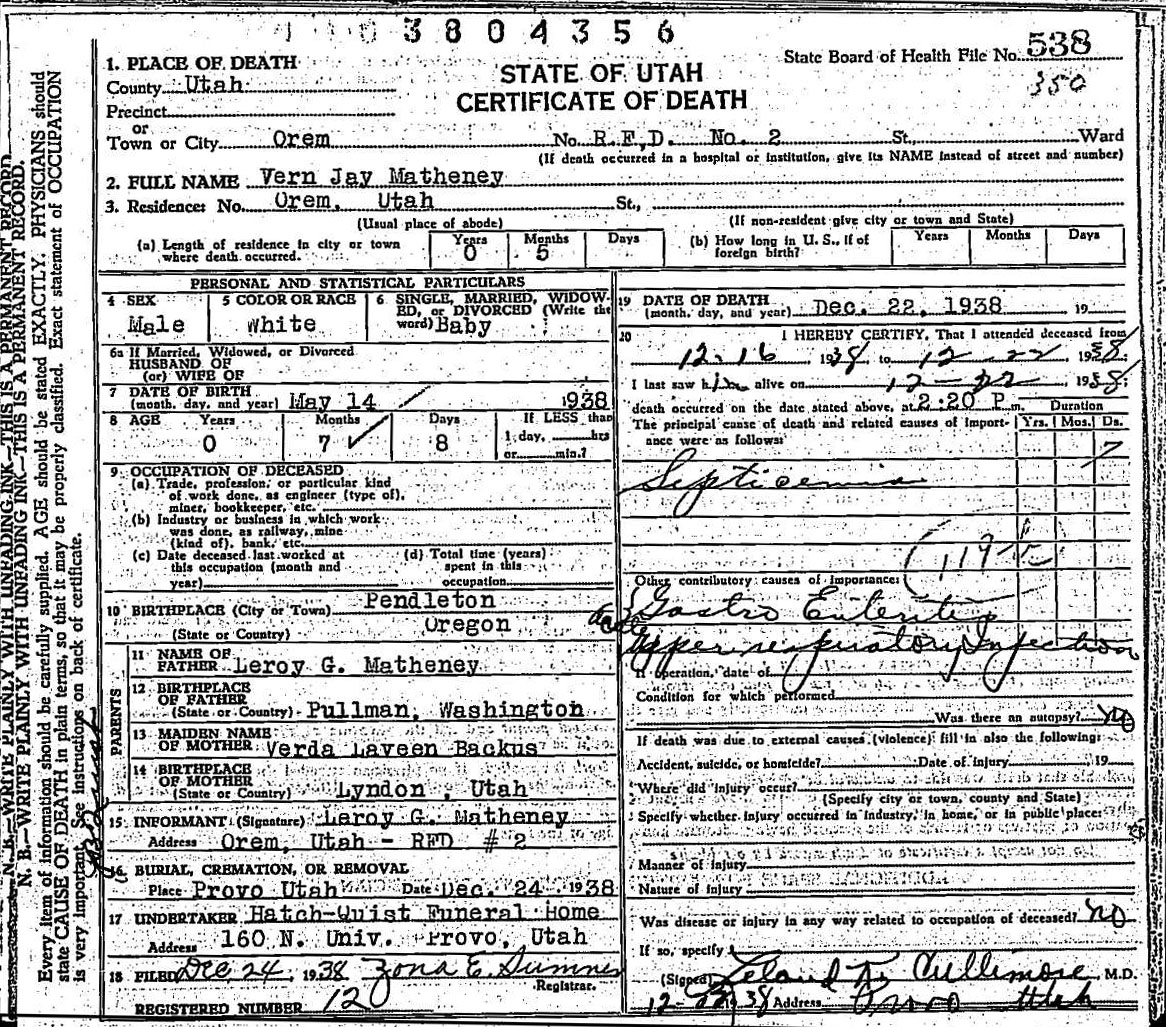 3804356
State Board of Health File No. 538
350
1. PLACE OF DEATH
County Utah
Precinct
or
Town or City Orem No. R.F.D. No. 2 St., Ward
(If death occurred in a hospital or institution, give its NAME instead of street and number)
STATE OF UTAH
CERTIFICATE OF DEATH
2. FULL NAME Vern Jay Matheney
3. Residence: No. Orem, Utah St.,
(Usual place of abode) (If non-resident give city or town and State)
(a) Length of residence in city or town where death occurred. Years 0 Months 5 Days
(b) How long in U. S., if of foreign birth? Years Months Days
PERSONAL AND STATISTICAL PARTICULARS
4 SEX Male
5 COLOR OR RACE White
6 SINGLE, MARRIED, WIDOWED, or DIVORCED (Write the word) Baby
6a If Married, Widowed, or Divorced
HUSBAND OF
(or) WIFE OF
7 DATE OF BIRTH
(month, day, and year) May 14 1938
8 AGE Years 0 Months 7 Days 8 If LESS than
1 day, hrs
or min.?
9 OCCUPATION OF DECEASED
(a) Trade, profession, or particular kind
of work done, as engineer (type of),
miner, bookkeeper, etc.
(b) Industry or business in which work
was done, as railway, mine
(kind of), bank, etc.
(c) Date deceased last worked at
this occupation (month and
year)
(d) Total time (years)
spent in this
occupation
10 BIRTHPLACE (City or Town) Pendleton
(State or Country) Oregon
PARENTS
11 NAME OF
FATHER Leroy G. Matheney
12 BIRTHPLACE
OF FATHER
(State or Country) Pullman, Washington
13 MAIDEN NAME
OF MOTHER Verda Laveen Backus
14 BIRTHPLACE
OF MOTHER
(State or Country) Lyndon, Utah
15 INFORMANT (Signature) Leroy G. Matheney
Address Orem, Utah - RFD # 2
16 BURIAL, CREMATION, OR REMOVAL
Place Provo Utah Date Dec. 24 1938
17 UNDERTAKER Hatch-Quist Funeral Home
Address 160 N. Univ. Provo, Utah
18 FILED Dec 24, 1938 Zona E. Sumner
Registrar.
REGISTERED NUMBER 120
19 DATE OF DEATH
(month, day, and year) Dec. 22, 1938 19
20 I HEREBY CERTIFY, That I attended deceased from
12-16 1938, to 12-22, 1938;
I last saw him alive on 12-22 1938;
death occurred on the date stated above, at 2:20 P.m.
Duration
Yrs. Mos. Ds.
The principal cause of death and related causes of importance were as follows:
7
Septicemia
119
Other contributory causes of importance:
Gastro Enteritis
acute
Upper respiratory Infection
If operation, date of
Condition for which performed
Was there an autopsy? no
If death was due to external causes (violence) fill in also the following:
Accident, suicide, or homicide? Date of injury 19
Where did injury occur?
(Specify city or town, county and State)
Specify whether injury occurred in industry, in home, or in public place:
Manner of injury
Nature of injury
Was disease or injury in any way related to occupation of deceased? no
If so, specify
(Signed) Leland K. Cullimore M.D.
12- 38 Address Provo Utah
N. B.—WRITE PLAINLY WITH UNFADING INK—THIS IS A PERMANENT RECORD
N. B.—WRITE PLAINLY WITH UNFADING INK—THIS IS A PERMANENT RECORD.
Every item of information should be carefully supplied. AGE should be stated EXACTLY. PHYSICIANS should
state CAUSE OF DEATH in plain terms, so that it may be properly classified. Exact statement of OCCUPATION
is very important. See instructions on back of certificate.